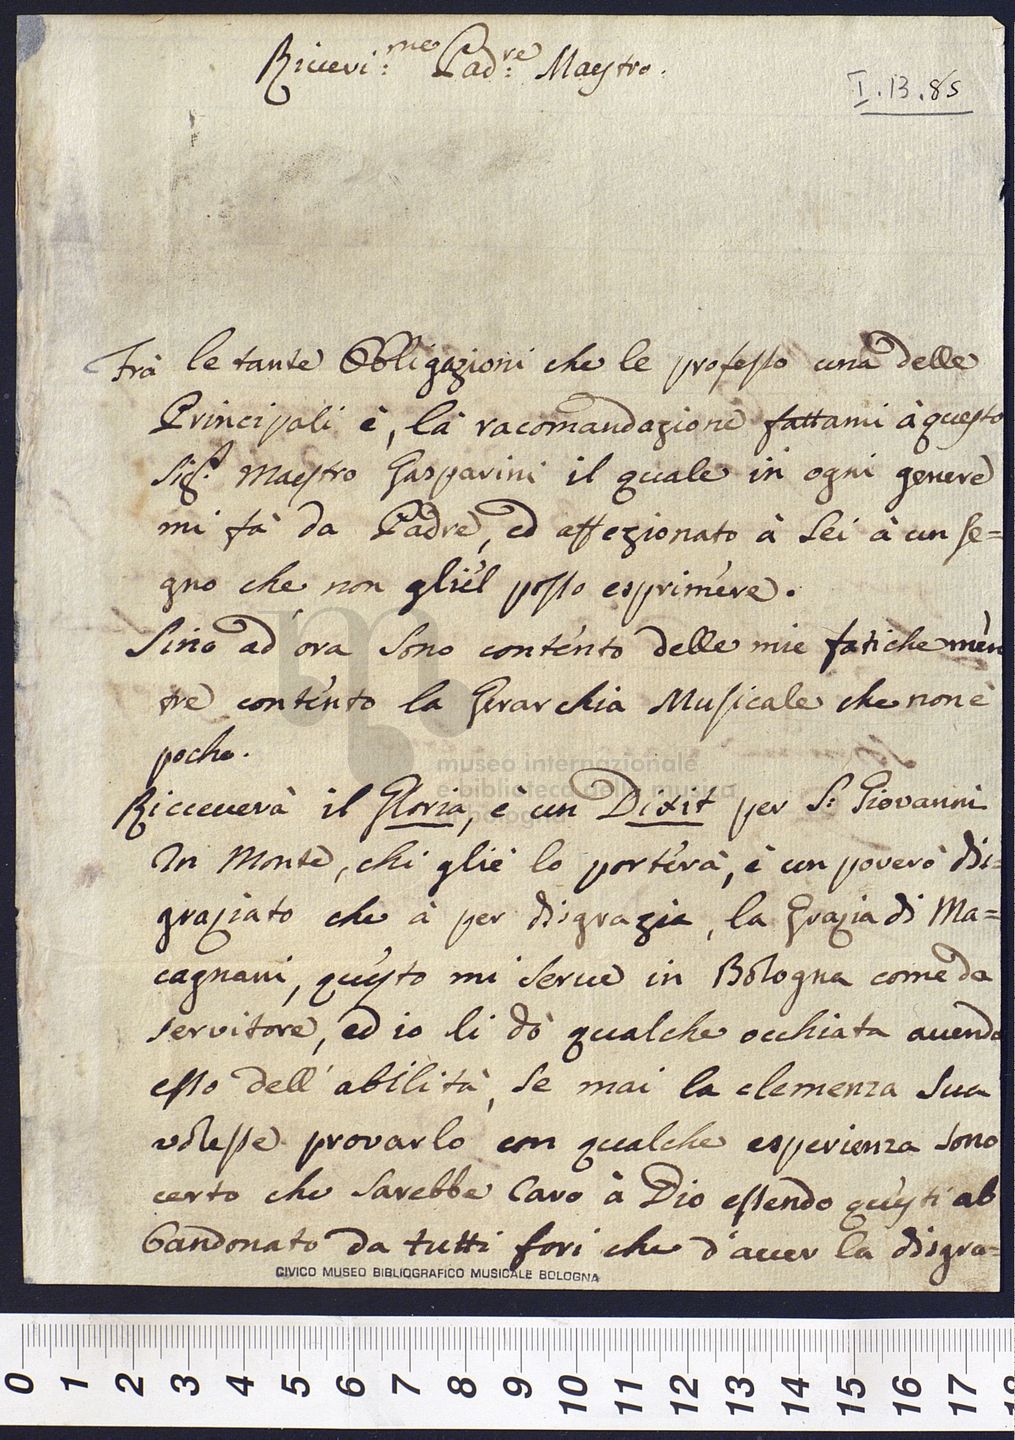 Riccevi:me Padre: Maestro.
I.13.85
Frà le tante Obbligazioni che le professo una delle
Principali è, la racomandazione fattami à questo
Sigr. Maestro Gasparini il quale in ogni genere
mi fà da Padre, ed affezionato à Lei à un se=
gno che non gliel posso esprimere.
Sino ad'ora sono contento delle mie fatiche men
tre contento la Gerarchia Musicale che non è
poche.
Ricceverà il Gloria, è un Dixit per S: Giovanni
In Monte, chi glie lo porterà, è un povero dis=
graziato che à per disgrazie, la Grazia di Ma=
cagnani, questo mi serve in Bologna come da
servitore, ed io li dò qualche occhiata avendo
esso dell'abilità, se mai la clemenza sua
volesse provarlo con qualche esperienza sono
certo che sarebbe Caro à Dio essendo questi ab
bandonato da tutti fori che d'aver la disgra=
museo internazionale
e biblioteca della musica
di bologna
CIVICO MUSEO BIBLIOGRAFICO MUSICALE BOLOGNA
0 1 2 3 4 5 6 7 8 9 10 11 12 13 14 15 16 17 18